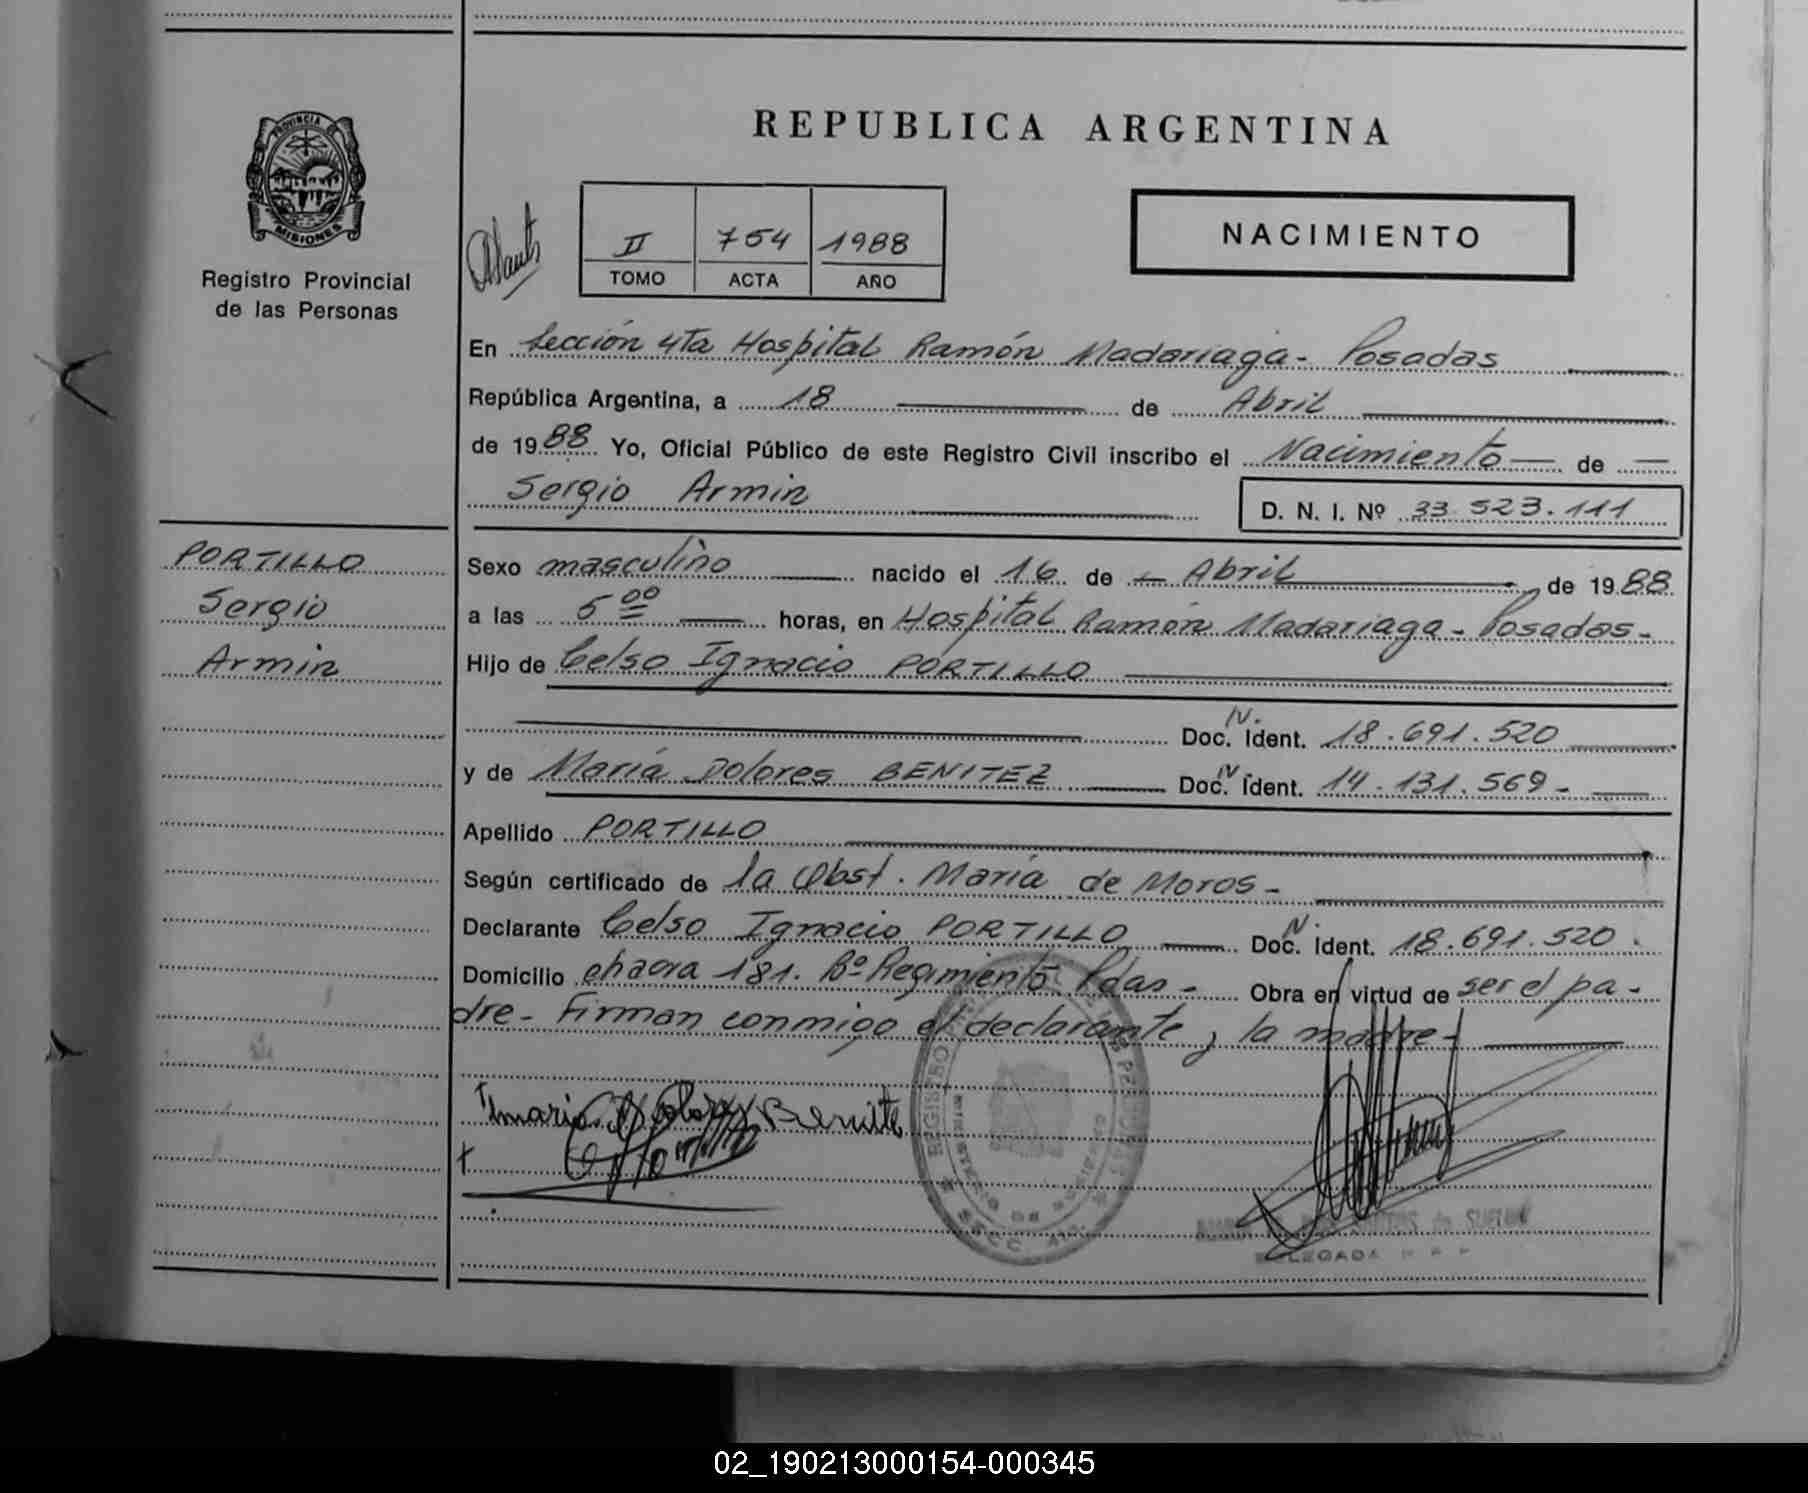 REPUBLICA ARGENTINA
PROVINCIA DE
MISIONES
Registro Provincial
de las Personas
II 754 1988
TOMO ACTA AÑO
NACIMIENTO
En Sección 4ta Hospital Ramón Madariaga - Posadas
República Argentina, a 18 de Abril
de 1988 Yo, Oficial Público de este Registro Civil inscribo el Nacimiento de
Sergio Armin
D. N. I. Nº 33.523.111
PORTILLO
Sergio
Armin
Sexo masculino nacido el 16 de Abril de 1988
a las 5 00 horas, en Hospital Ramón Madariaga - Posadas -
Hijo de Celso Ignacio PORTILLO
N. Doc. Ident. 18.691.520
y de María Dolores BENITEZ N. Doc. Ident. 14.131.569 -
Apellido PORTILLO
Según certificado de la Obst. María de Moros -
Declarante Celso Ignacio PORTILLO N. Doc. Ident. 18.691.520.
Domicilio chacra 181. Bº Regimiento Pdas - Obra en virtud de ser el pa-
dre - Firman conmigo el declarante y la madre -
Benitte
REGISTRO
MINISTERIO DE GOBIERNO
SECC. 4ta
DELEGADA
02_190213000154-000345